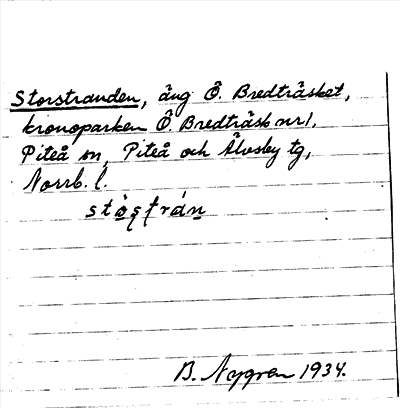 Storstranden, äng Ö. Bredträsket,
kronoparken Ö. Bredträsk nr 1,
Piteå sn, Piteå och Älvsby tg,
Norrb. l.
B. Nygren 1934.